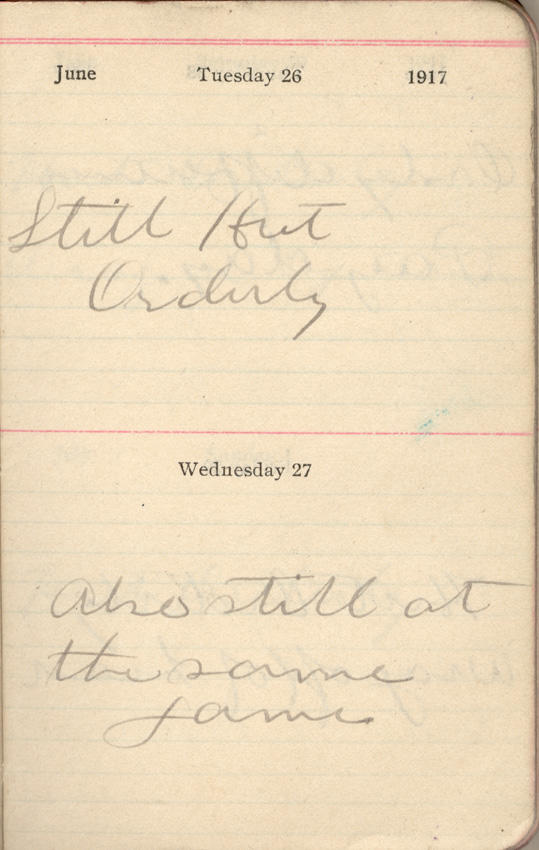 June Tuesday 26 1917
Still Hut
Orderly
Wednesday 27
Also still at
the same
game